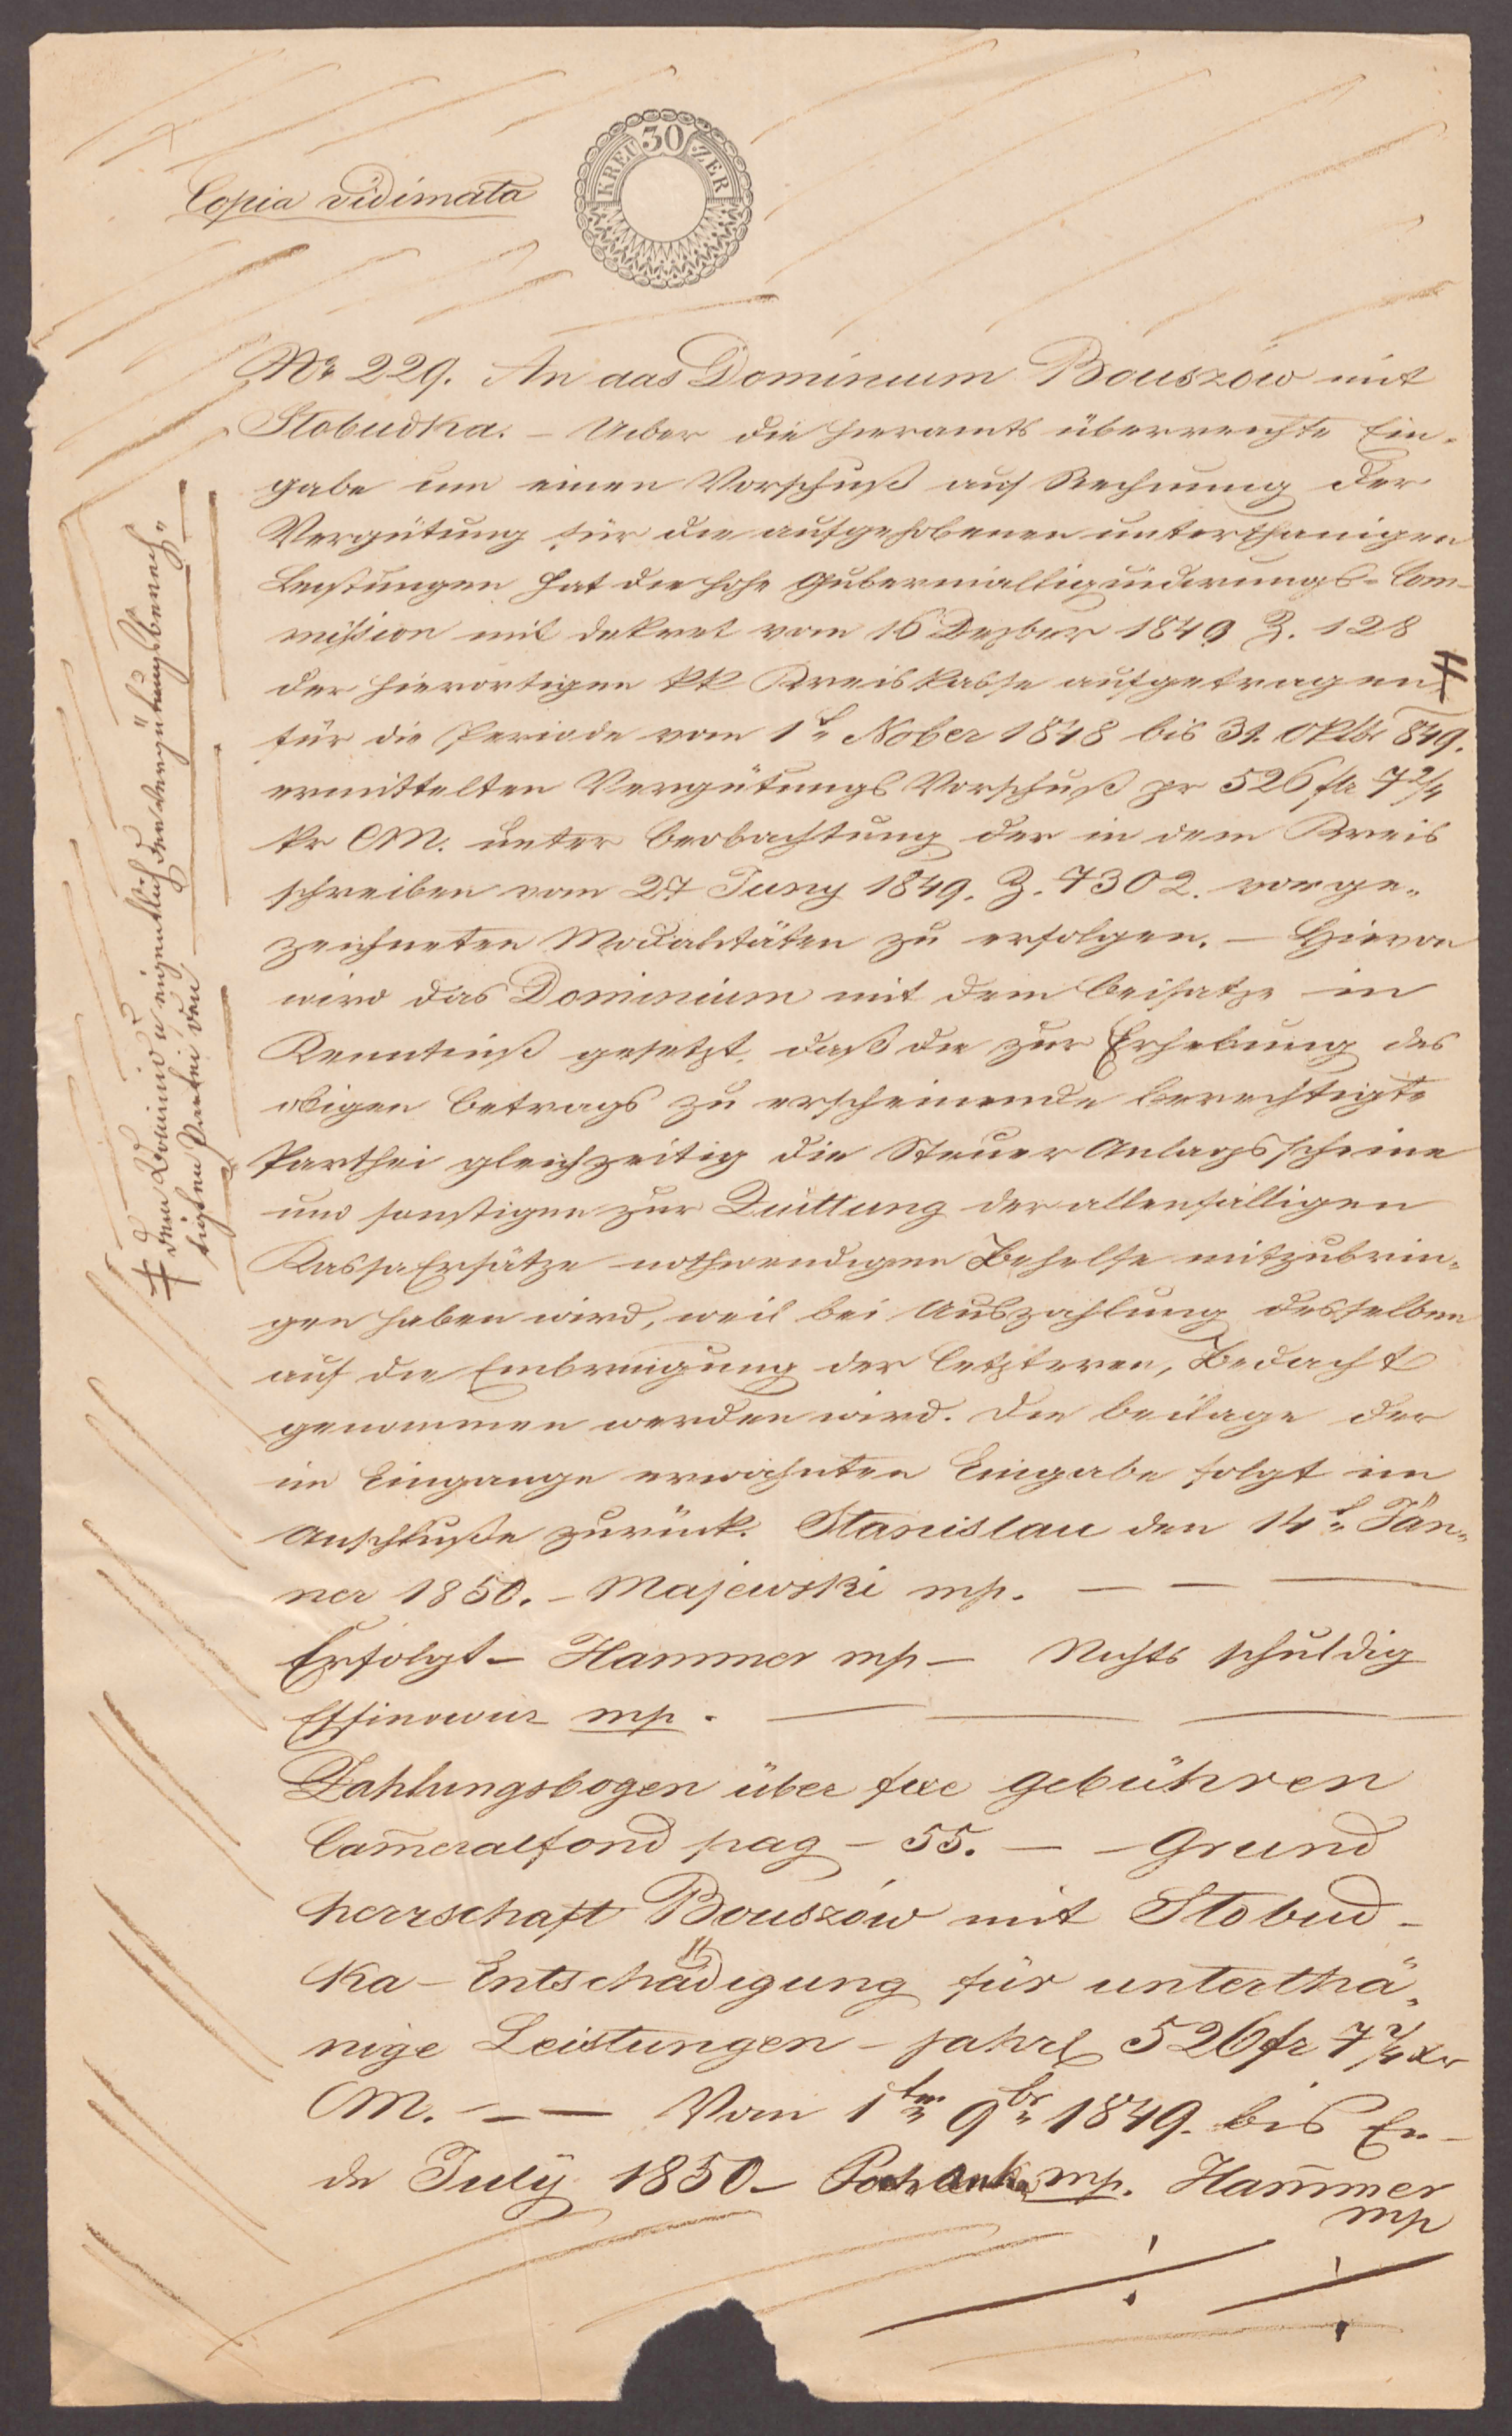 Copia vidimata
30
KREUZER
Nr 229. An das Dominium Bouszów mit
Slobudka. – Ueber die hieramts überreichte Ein-
gabe um einen Vorschuß auf Rechnung der
Vergütung für die aufgehobenen unterthänigen
Leistungen hat die hohe Gubernialliquidirungs-Com-
mission mit Dekret vom 16 Dezber 1849 Z. 128
der hierortigen kk Kreiskasse aufgetragen ǂ
für die Periode vom 1t Nober 1848 bis 31. Oktbr 849.
ermittelten Vergütungs Vorschuß pr 526 fr 7 2/4
kr CM. unter Beobachtung der in dem Kreis
schreiben vom 27 Juny 1849. Z. 7302. vorge-
zeichneten Modalitäten zu erfolgen. – Hievon
wird das Dominium mit dem Beisatze in
Kenntniß gesetzt, daß die zur Erhebung des
obigen Betrags zu erscheinende berechtigte
Parthei gleichzeitig die Steuer Anlagsscheine
und sonstigen zur Quittung der allenfälligen
Kassa Ersätze nothwendigen Behelfe mitzubrin-
gen haben wird, weil bei Auszahlung desselben
auf die Einbringung der letzteren, Bedacht
genommen werden wird. Die Beilage der
im Eingange erwähnten Eingabe folgt im
Anschluße zurück. Stanislau den 14t Jän-
ner 1850. – Majewski mp.
Erfolgt – Hammer mp – Nichts schuldig
mp.
Zahlungsbogen über fixe Gebühren
Cam̄eralfond pag – 55. – – Grund
herrschaft Bouszów mit Slobud-
ka – Entschädigung für unterthä-
nige Leistungen – jährl 526 fr 7 2/4 xr
CM. – – Vom 1ten 9br 1849. bis En-
de July 1850 – mp. Ham̄mer
mp
ǂ dem Domino u eigentlich den Vergütungsberech-
tigten Parteien den